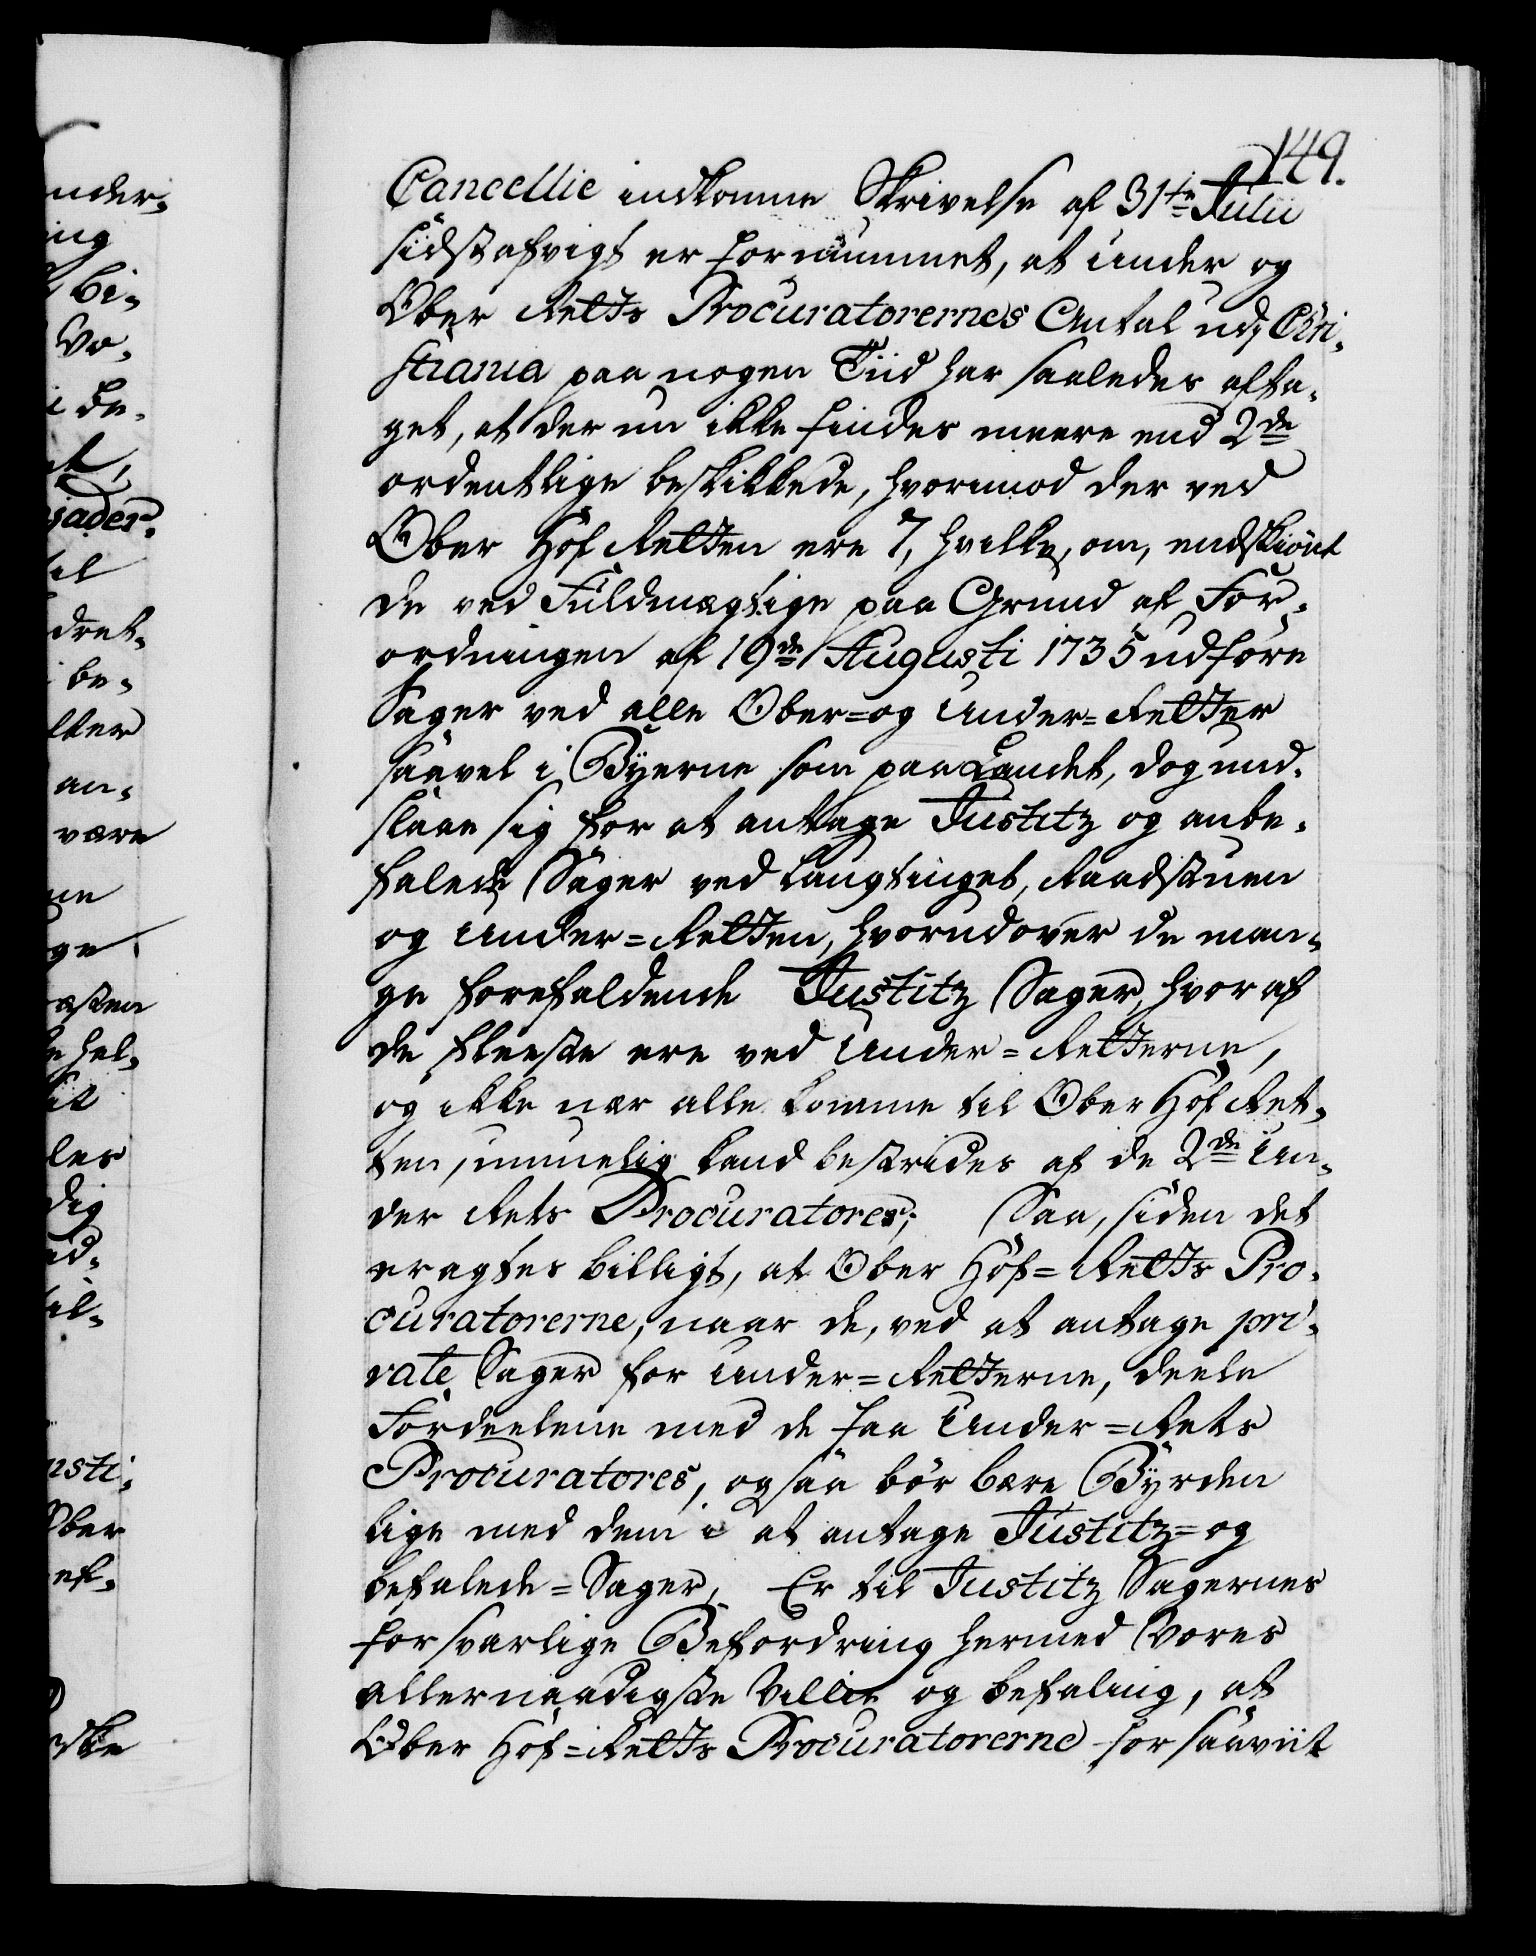 149.
Cancellie indkomne Skrivelse af 31te Julii
sidstafvigt er fornummet, at Under og
Ober Retts Procuratorernes Antal udj Chri-
stiania paa nogen Tiid har saaledes afta-
get, at der nu ikke findes meere end 2de
ordentlige beskikkede, hvorimod der ved
Ober Hof Retten ere 7, hvilke, om, endskiönt
de ved Fuldmægtige paa Grund af For-
ordningen af 19de Augusti 1735 udföre
Sager ved alle Ober= og Under=Retter
saavel i Byerne som paa Landet, dog und-
slaae sig for at antage Justitz og anbe-
falede Sager ved Laugtinget, Raadstuen
og Under=Retten, hvorudover de man-
ge forefaldende Justitz Sager, hvoraf
de fleeste ere ved Under=Retterne,
og ikke nær alle komme til Ober Hof Ret-
ten, umuelig kand bestrides af de 2de Un-
der Rets Procuratores; Saa, siden det
eragtes billigt, at Ober Hof=Retts Pro-
curatorerne, naar de, ved at antage pri-
vate Sager for Under=Retterne, deele
Fordeelene med de faa Under=Rets
Procuratores, ogsaa bör bære Byrden
lige med dem i at antage Justitz= og
befalede=Sager, Er til Justitz Sagernes
forsvarlige Befordring hermed Vores
allernaadigste Villie og befaling, at
Ober Hof=Retts Procuratorerne forsaaviit